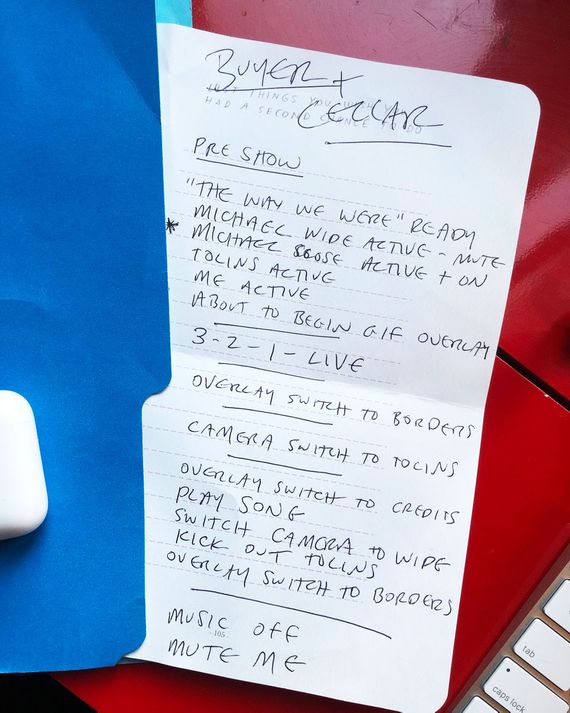 BUYER +
JUST THINGS YOU WISH YOU
HAD A SECOND CHANCE TO DO
CELLAR
PRE SHOW
"THE WAY WE WERE" READY
MICHAEL WIDE ACTIVE - MUTE
* MICHAEL CLOSE ACTIVE + ON
TOLINS ACTIVE
ME ACTIVE
ABOUT TO BEGIN GIF OVERLAY
3-2-1-LIVE
OVERLAY SWITCH TO BORDERS
CAMERA SWITCH TO TOLINS
OVERLAY SWITCH TO CREDITS
PLAY SONG
SWITCH CAMERA TO WIDE
KICK OUT TOLINS
OVERLAY SWITCH TO BORDERS
MUSIC OFF
105
MUTE ME
tab
caps lock